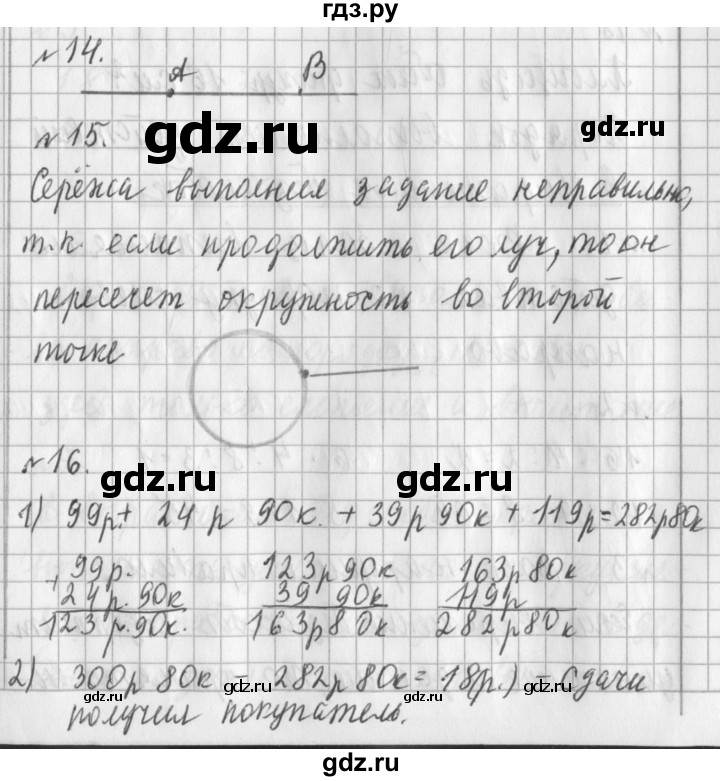 гдз.ру
№14.
A B
gdz.ru
№15.
Серёжа выполнил задание неправильно,
т.к. если продолжить его луч, то он
пересечет окружность во второй
точке
№16.
gdz.ru gdz.ru
1) 99р.+ 24 р 90к. + 39р 90к + 119р=282р80к
99р. 123р90к 163р80к
+24р.90к 39 90к 119р
123р.90к. 163р80к 282р80к
2) 300р 80к - 282р 80к = 18(р.) - сдачи
получил покупатель.
gdz.ru gdz.ru
gdz.ru